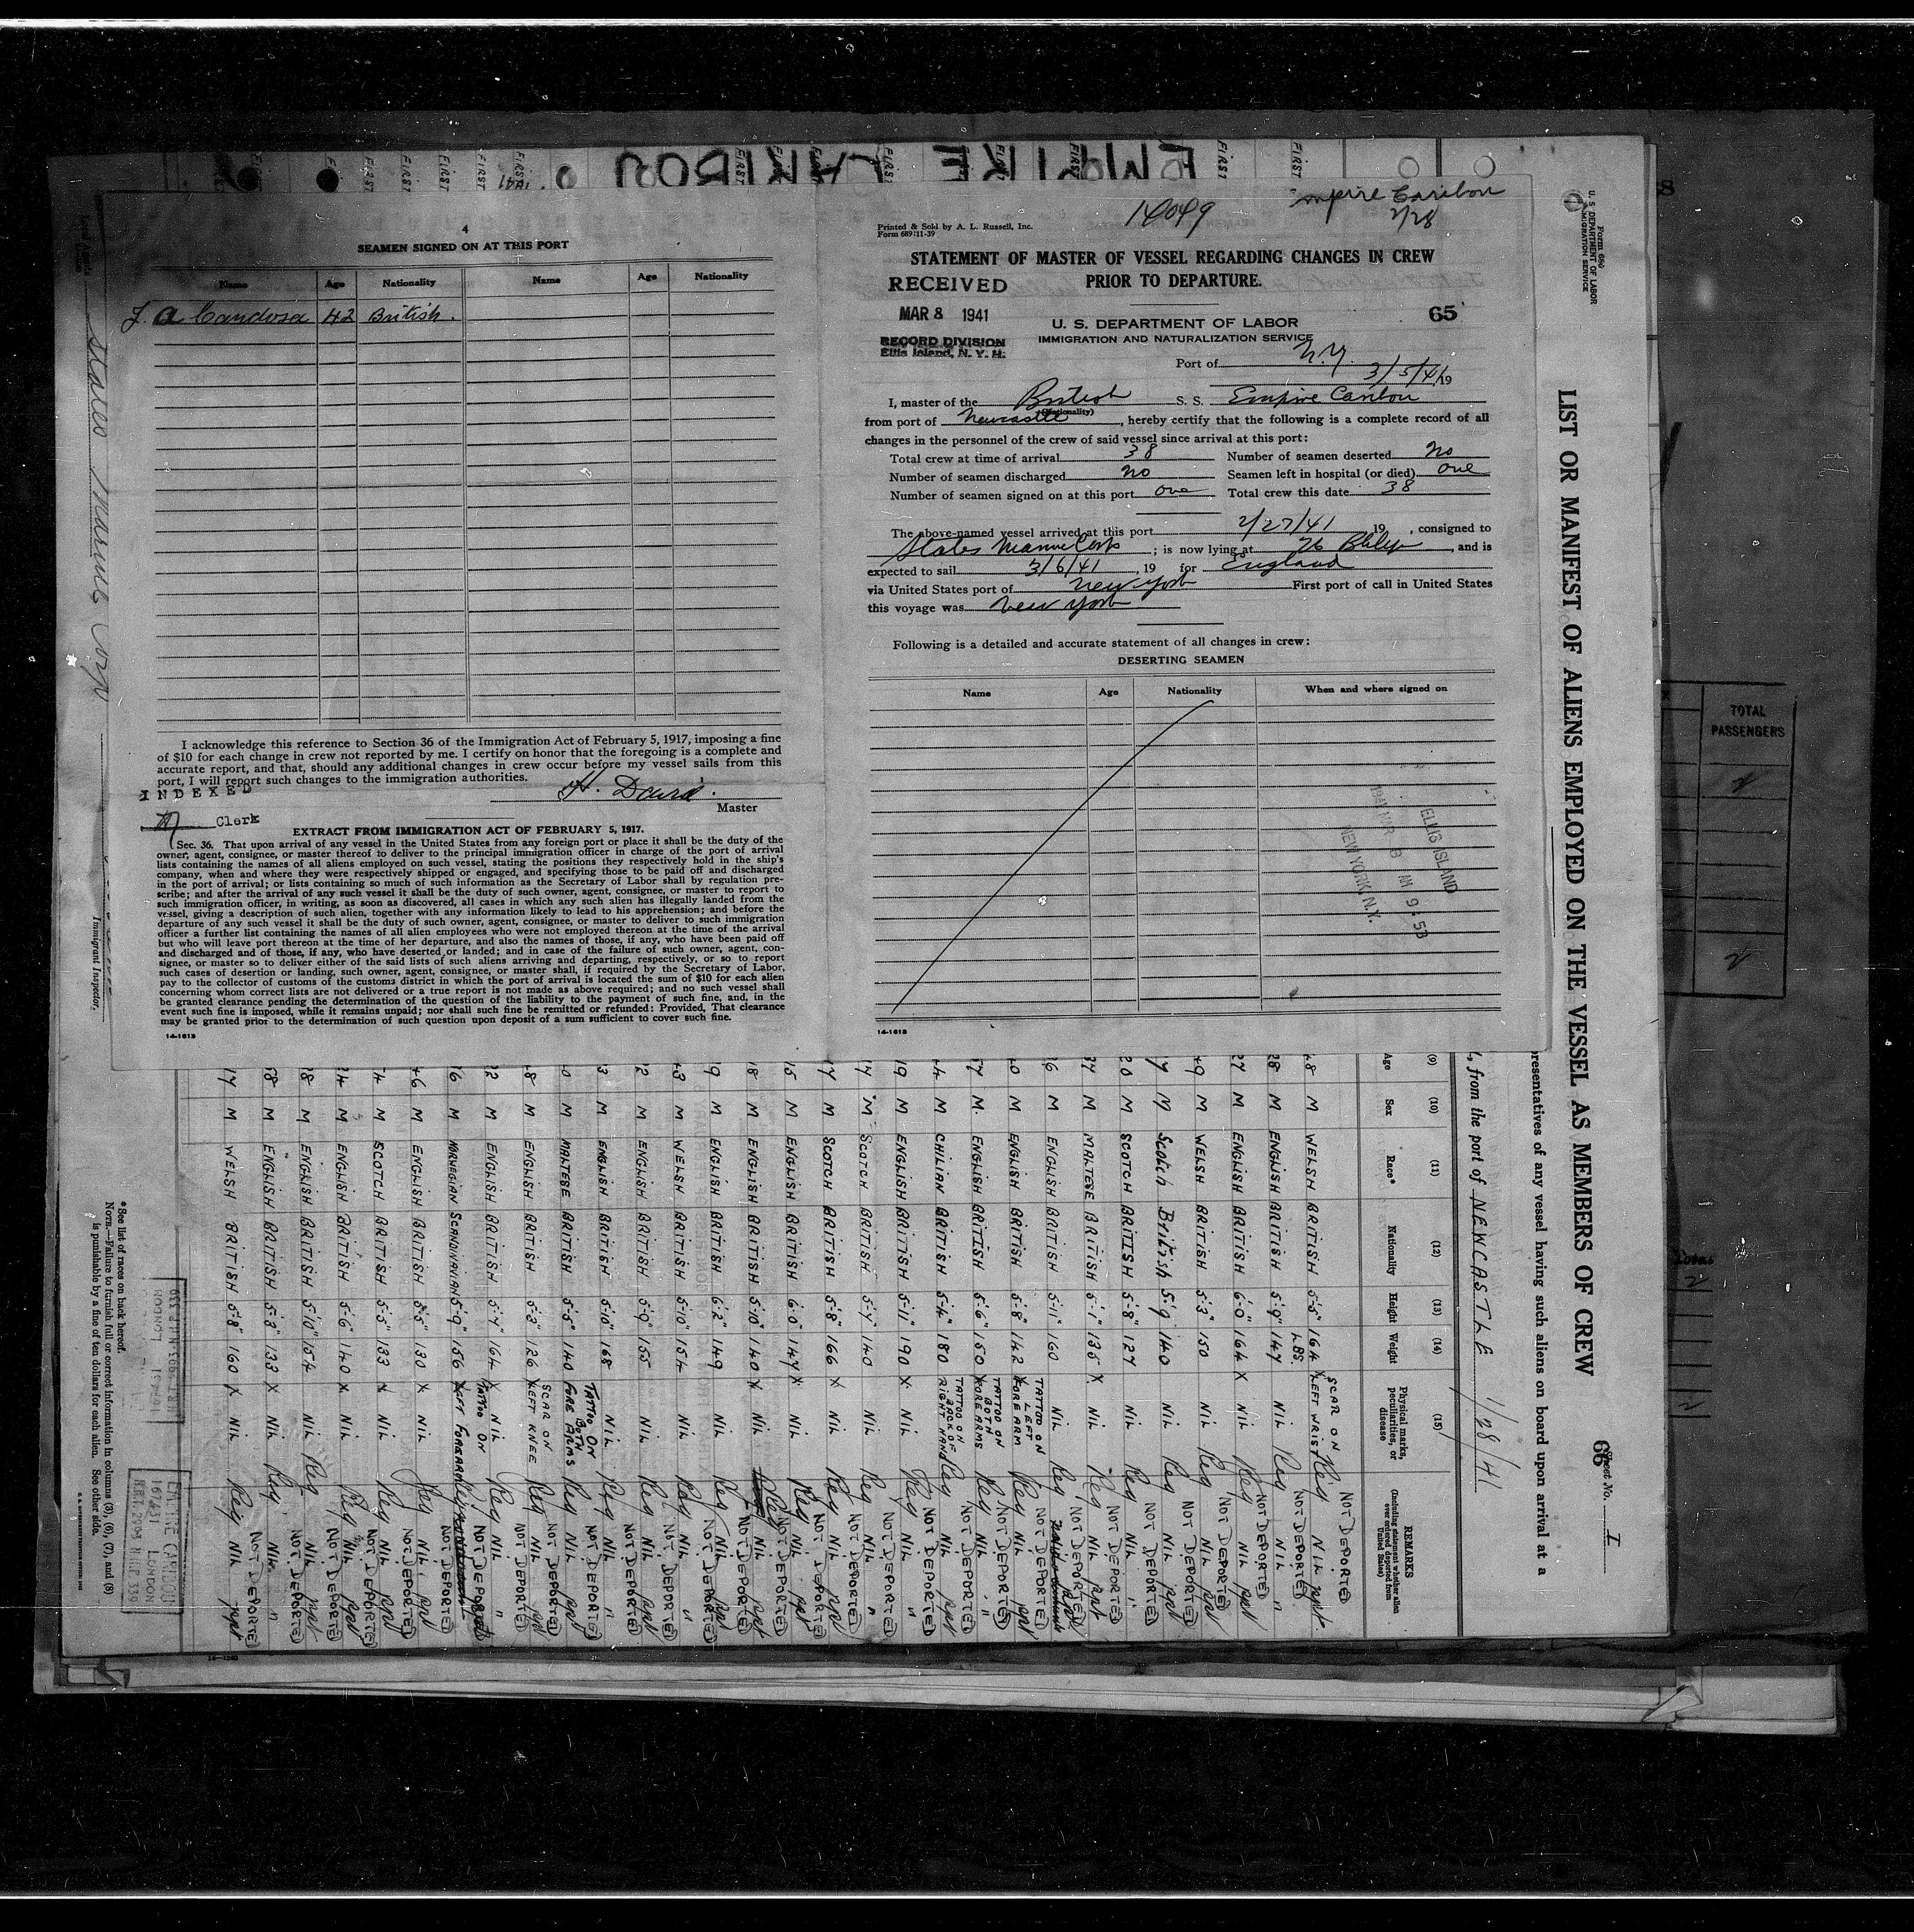 EMPIRE CARIBOU
4
SEAMEN SIGNED ON AT THIS PORT
Name Age Nationality Name Age Nationality
J. A Candosa 42 British.
I acknowledge this reference to Section 36 of the Immigration Act of February 5, 1917, imposing a fine
of $10 for each change in crew not reported by me. I certify on honor that the foregoing is a complete and
accurate report, and that, should any additional changes in crew occur before my vessel sails from this
port, I will report such changes to the immigration authorities.
INDEXED
H. David.
Master
Clerk
EXTRACT FROM IMMIGRATION ACT OF FEBRUARY 5, 1917.
Sec. 36. That upon arrival of any vessel in the United States from any foreign port or place it shall be the duty of the
owner, agent, consignee, or master thereof to deliver to the principal immigration officer in charge of the port of arrival
lists containing the names of all aliens employed on such vessel, stating the positions they respectively hold in the ship's
company, when and where they were respectively shipped or engaged, and specifying those to be paid off and discharged
in the port of arrival; or lists containing so much of such information as the Secretary of Labor shall by regulation pre-
scribe; and after the arrival of any such vessel it shall be the duty of such owner, agent, consignee, or master to report to
such immigration officer, in writing, as soon as discovered, all cases in which any such alien has illegally landed from the
vessel, giving a description of such alien, together with any information likely to lead to his apprehension; and before the
departure of any such vessel it shall be the duty of such owner, agent, consignee, or master to deliver to such immigration
officer a further list containing the names of all alien employees who were not employed thereon at the time of the arrival
but who will leave port thereon at the time of her departure, and also the names of those, if any, who have been paid off
and discharged and of those, if any, who have deserted or landed; and in case of the failure of such owner, agent, con-
signee, or master so to deliver either of the said lists of such aliens arriving and departing, respectively, or so to report
such cases of desertion or landing, such owner, agent, consignee, or master shall, if required by the Secretary of Labor,
pay to the collector of customs of the customs district in which the port of arrival is located the sum of $10 for each alien
concerning whom correct lists are not delivered or a true report is not made as above required; and no such vessel shall
be granted clearance pending the determination of the question of the liability to the payment of such fine, and, in the
event such fine is imposed, while it remains unpaid; nor shall such fine be remitted or refunded: Provided, That clearance
may be granted prior to the determination of such question upon deposit of a sum sufficient to cover such fine.
14-1613
14049
Empire Caribou
2/28
Printed & Sold by A. L. Russell, Inc.
Form 689:11-39
STATEMENT OF MASTER OF VESSEL REGARDING CHANGES IN CREW
PRIOR TO DEPARTURE.
RECEIVED
MAR 8 1941
RECORD DIVISION
Ellis Island, N. Y. H.
65
U. S. DEPARTMENT OF LABOR
IMMIGRATION AND NATURALIZATION SERVICE
Port of N.Y.
3/5/41 19
I, master of the British S. S. Empire Caribou
(Nationality)
from port of Newcastle, hereby certify that the following is a complete record of all
changes in the personnel of the crew of said vessel since arrival at this port:
Total crew at time of arrival 38 Number of seamen deserted no
Number of seamen discharged no Seamen left in hospital (or died) one
Number of seamen signed on at this port one Total crew this date 38
The above-named vessel arrived at this port 2/27/41 19 , consigned to
States Marine Corp ; is now lying at 26 , and is
expected to sail 3/6/41, 19 for England
via United States port of New York First port of call in United States
this voyage was New York
Following is a detailed and accurate statement of all changes in crew:
DESERTING SEAMEN
Name Age Nationality When and where signed on
ELLIS ISLAND
1941 MAR 8 AM 9:53
NEW YORK N.Y.
14-1613
Form 680
U. S. DEPARTMENT OF LABOR
IMMIGRATION SERVICE
LIST OR MANIFEST OF ALIENS EMPLOYED ON THE VESSEL AS MEMBERS OF CREW
Sheet No. I
66
presentatives of any vessel having such aliens on board upon arrival at a
, from the port of NEWCASTLE 1/28/41
(9) (10) (11) (12) (13) (14) (15)
Age Sex Race* Nationality Height Weight Physical marks, peculiarities, or disease REMARKS (Including statement whether alien ever ordered deported from United States)
48 M WELSH BRITISH 5-5" 164 SCAR ON LEFT WRIST Reg NIL NOT DEPORTED
28 M ENGLISH BRITISH 5-9" 147 LBS NIL Reg NIL NOT DEPORTED
27 M ENGLISH BRITISH 6-0" 164 X NIL Reg NIL NOT DEPORTED
M WELSH BRITISH 5-3" 150 NIL Reg NIL NOT DEPORTED
M Scotch British 5'9 140 NIL Reg NIL NOT DEPORTED
20 M SCOTCH BRITISH 5-8" 127 NIL Reg NIL NOT DEPORTED
37 M MALTESE BRITISH 5-1" 135 X NIL Reg NOT DEPORTED
M ENGLISH BRITISH 5-11" 160 NIL Reg NOT DEPORTED
M ENGLISH BRITISH 5-8" 142 TATTOO ON LEFT FORE ARM Reg NIL NOT DEPORTED
M ENGLISH BRITISH 5-6" 150 TATTOO ON BOTH FORE ARMS Reg NIL NOT DEPORTED
M CHILIAN BRITISH 5-4" 180 TATTOO ON BACK OF RIGHT HAND Reg NIL NOT DEPORTED
19 M ENGLISH BRITISH 5-11" 190 X NIL Reg NIL NOT DEPORTED
M SCOTCH BRITISH 5-7" 140 NIL Reg NIL NOT DEPORTED
M SCOTCH BRITISH 5-8" 166 X NIL Reg NIL NOT DEPORTED
M ENGLISH BRITISH 6-0" 147 X NIL Reg NIL NOT DEPORTED
M ENGLISH BRITISH 5-10" 140 X NIL Reg NIL NOT DEPORTED
M ENGLISH BRITISH 6-2" 149 NIL Reg NIL NOT DEPORTED
M WELSH BRITISH 5-10" 154 NIL Reg NIL NOT DEPORTED
M ENGLISH BRITISH 5-9" 155 NIL Reg NIL NOT DEPORTED
M ENGLISH BRITISH 5-10" 168 NIL Reg NIL NOT DEPORTED
M MALTESE BRITISH 5-5" 140 TATTOO ON BOTH FORE ARMS Reg NIL NOT DEPORTED
M ENGLISH BRITISH 5-3" 126 SCAR ON LEFT KNEE Reg NIL NOT DEPORTED
M ENGLISH BRITISH 5-7" 164 NIL Reg NIL NOT DEPORTED
M NORWEGIAN SCANDINAVIAN 5-9" 156 TATTOO ON LEFT FOREARM NOT DEPORTED
46 M ENGLISH BRITISH 5-5" 130 X NIL Reg NIL NOT DEPORTED
M SCOTCH BRITISH 5-5" 133 X NIL Reg NIL NOT DEPORTED
M ENGLISH BRITISH 5-6" 140 X NIL Reg NIL NOT DEPORTED
M ENGLISH BRITISH 5-10" 154 NIL Reg NIL NOT DEPORTED
M ENGLISH BRITISH 5-3" 133 X NIL Reg NIL NOT DEPORTED
M WELSH BRITISH 5-8" 160 X NIL Reg NIL NOT DEPORTED
States Marine Corp
Immigrant Inspector.
*See list of races on back hereof.
NOTE.—Failure to furnish full or correct information in columns (3), (6), (7), and (8)
is punishable by a fine of ten dollars for each alien. See other side.
EMPIRE CARIBOU
167431 LONDON
NRT. 2993 N.H.P. 339
TOTAL PASSENGERS
2
2
Total
2
2